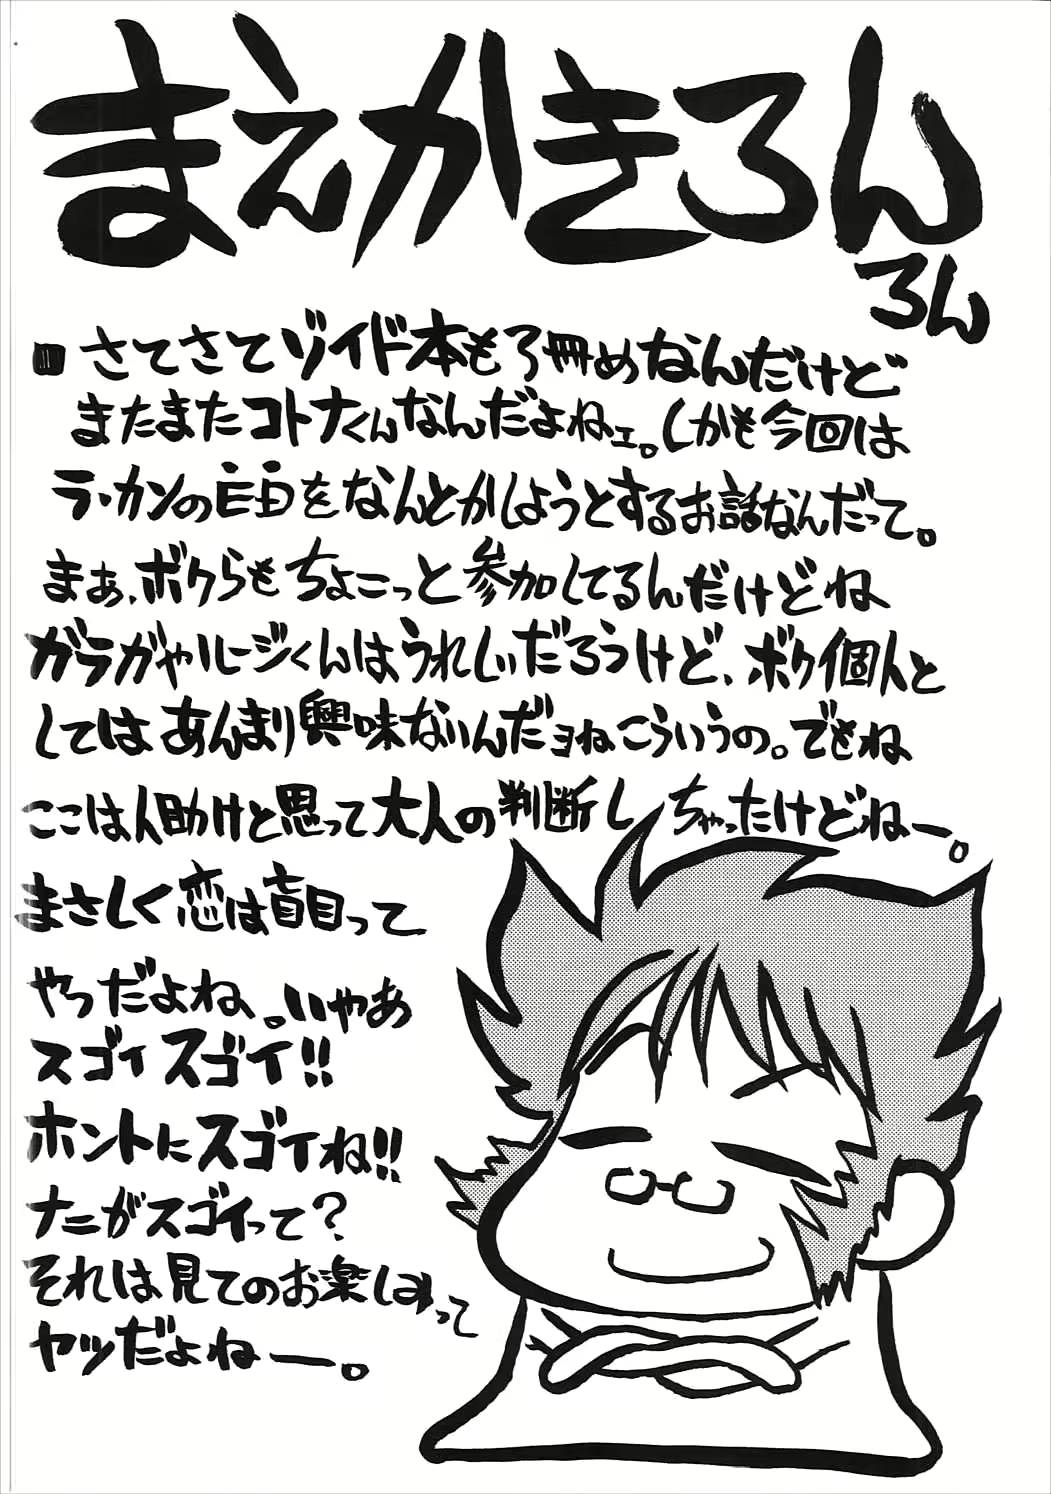 まえかきろん
ろん
■さてさてゾイド本も3冊めなんだけど
またまたコトナくんなんだよねェ。しかも今回は
ラ・カンの自由をなんとかしようとするお話なんだって。
まぁ、ボクらもちょこっと参加してるんだけどね
ガラガやルージくんはうれしいだろうけど、ボク個人と
してはあんまり興味ないんだョねこういうの。でもね
ここは人助けと思って大人の判断しちゃったけどねー。
まさしく恋は盲目って
やつだよね、。いやあ
スゴイスゴイ!!
ホントにスゴイね!!
ナニがスゴイって?
それは見てのお楽しみって
ヤツだよねー。